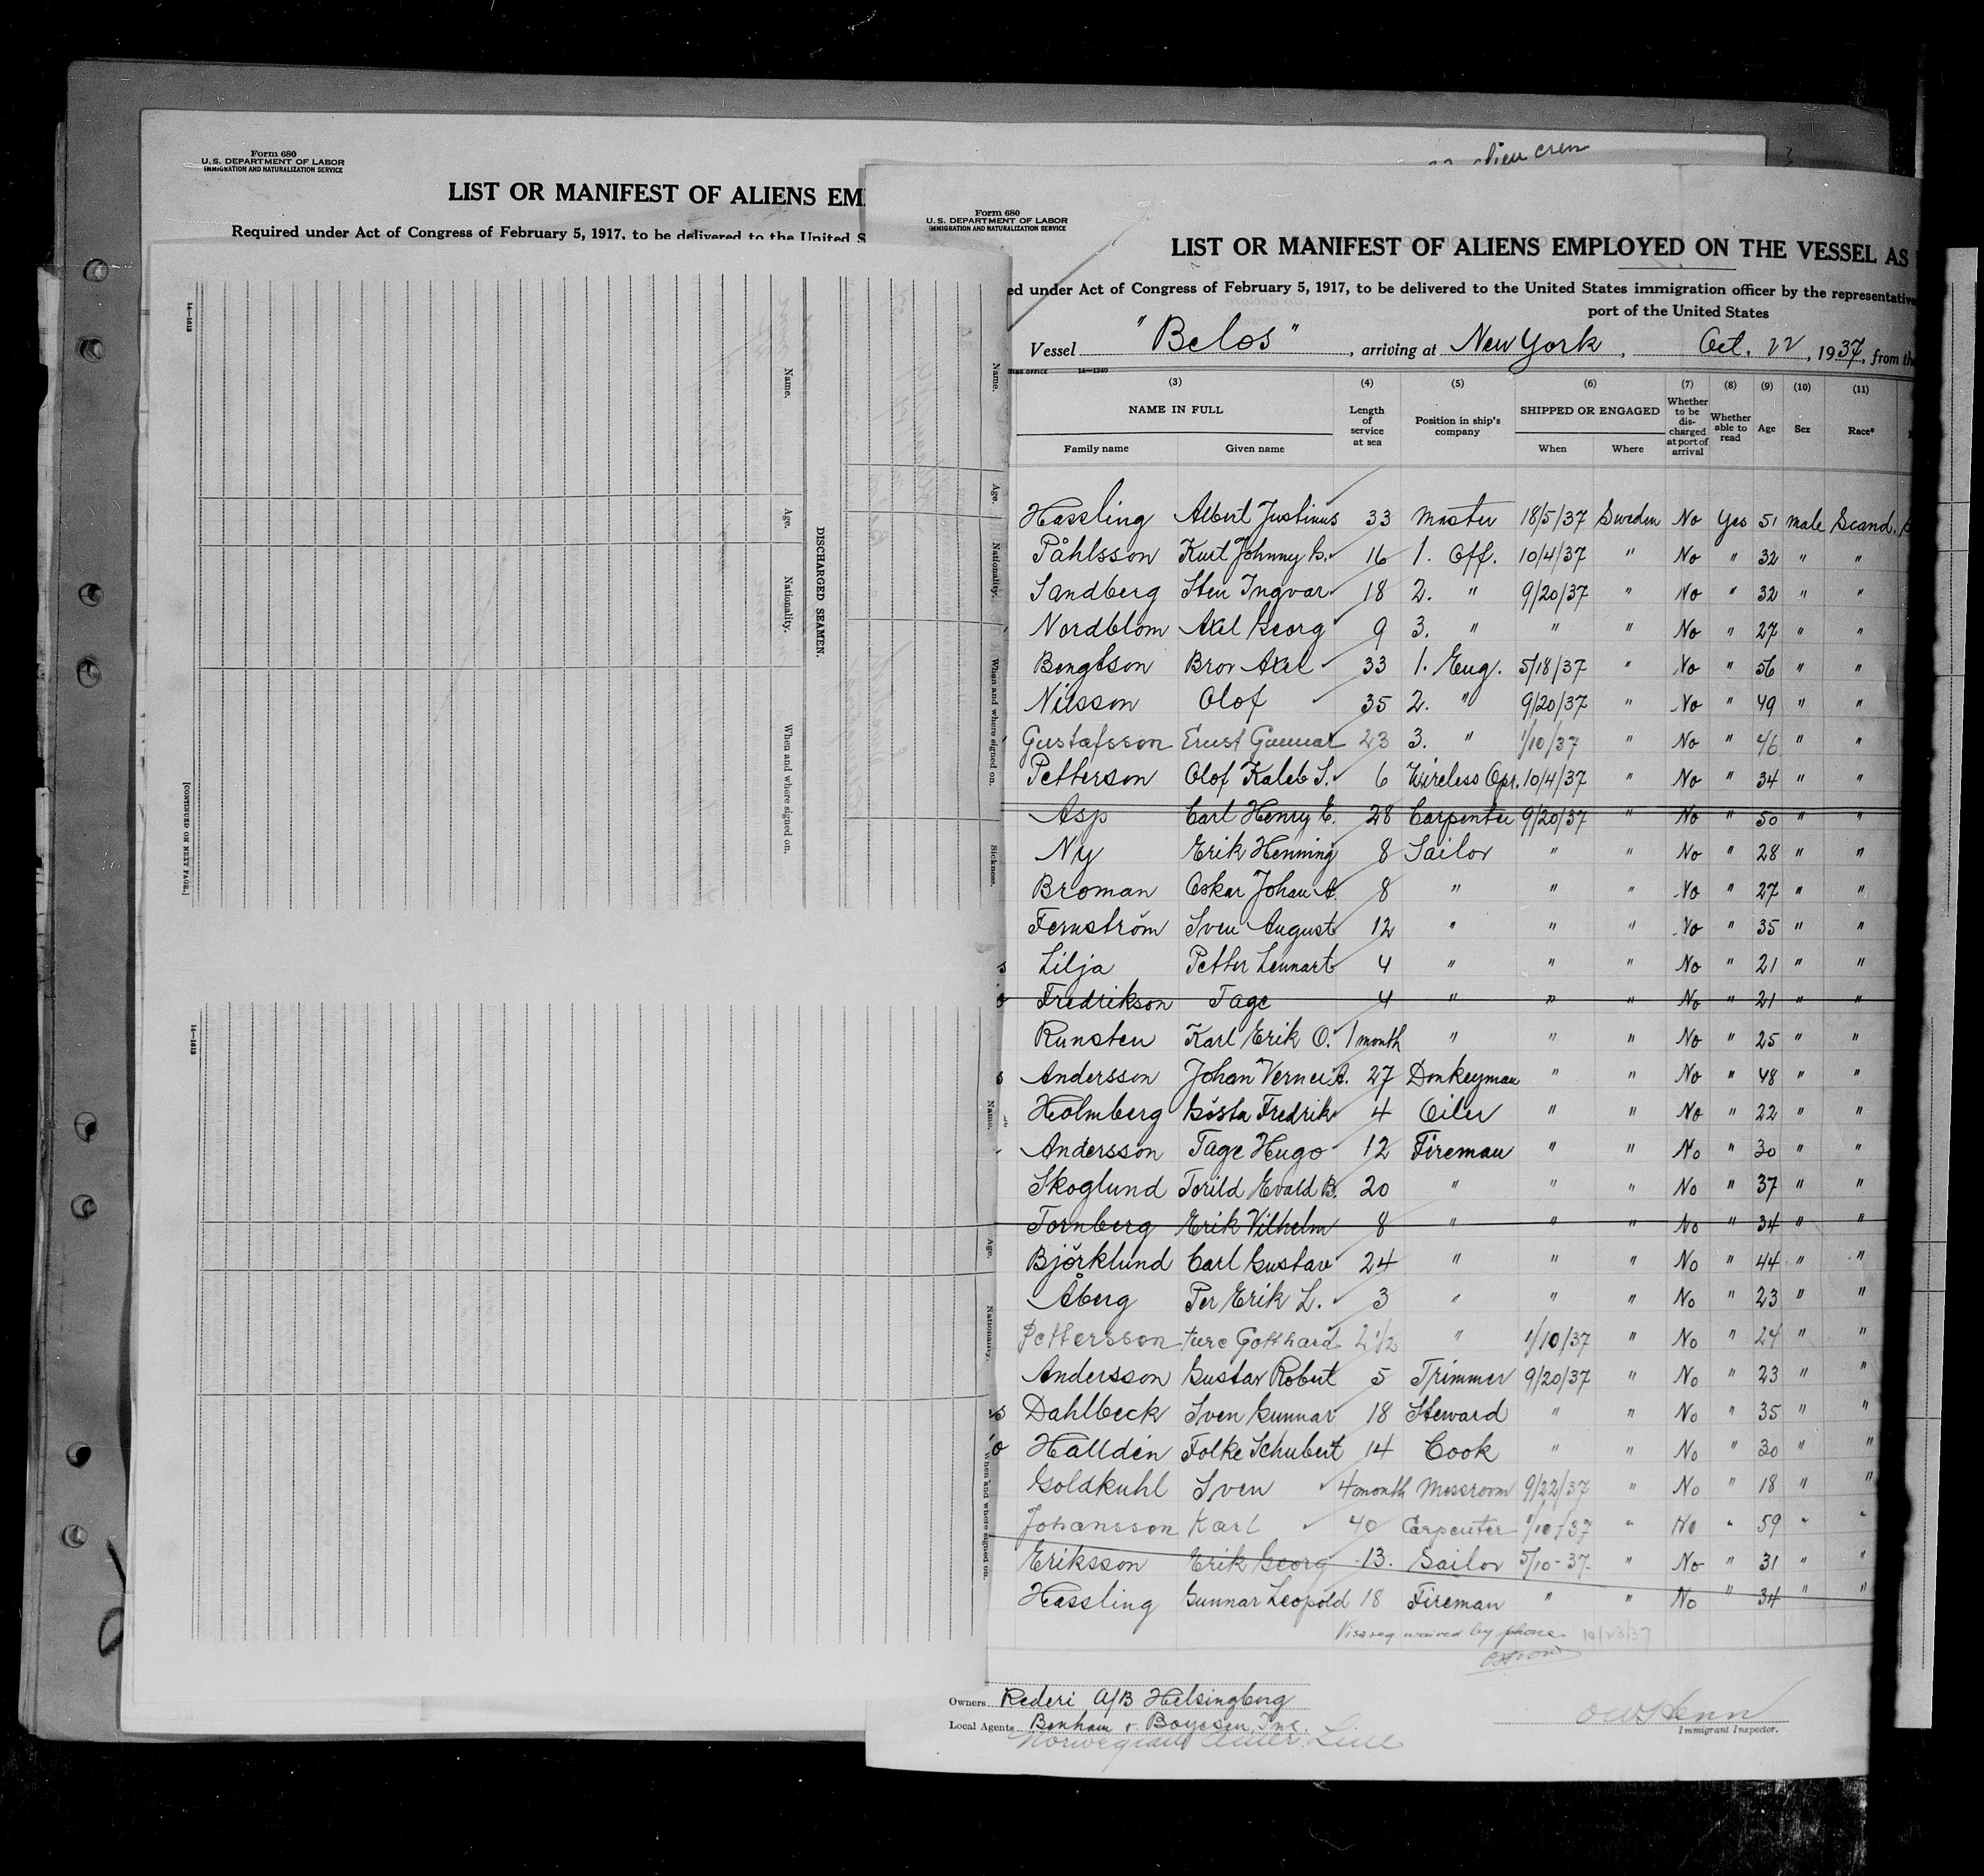 alien crew
Form 680
U. S. DEPARTMENT OF LABOR
IMMIGRATION AND NATURALIZATION SERVICE
LIST OR MANIFEST OF ALIENS EM
Required under Act of Congress of February 5, 1917, to be delivered to the United S
14—1613
Name.
Age.
Nationality.
When and where signed on.
DISCHARGED SEAMEN.
[CONTINUED ON NEXT PAGE.]
Name.
Age.
Nationality.
When and where signed on.
Sickness.
14—1613
Name.
Age.
Nationality.
When and where signed on.
Form 680
U. S. DEPARTMENT OF LABOR
IMMIGRATION AND NATURALIZATION SERVICE
LIST OR MANIFEST OF ALIENS EMPLOYED ON THE VESSEL AS
ed under Act of Congress of February 5, 1917, to be delivered to the United States immigration officer by the representative
port of the United States
Vessel "Belos", arriving at New York, Oct. 22, 1937, from th
14—1240
(3) (4) (5) (6) (7) (8) (9) (10) (11)
NAME IN FULL Length of service at sea Position in ship's company SHIPPED OR ENGAGED Whether to be discharged at port of arrival Whether able to read Age Sex Race*
Family name Given name When Where
Hassling Albert Justinus 33 Master 18/5/37 Sweden No Yes 51 male Scand.
Påhlsson Kurt Johnny G. 16 1. Off. 10/4/37 " No " 32 " "
Sandberg Sten Ingvar 18 2. " 9/20/37 " No " 32 " "
Nordblom Axel Georg 9 3. " " " No " 27 " "
Bengtson Bror Axel 33 1. Eng. 5/18/37 " No " 56 " "
Nilsson Olof 35 2. " 9/20/37 " No " 49 " "
Gustafsson Ernst Gunnar 23 3. " 1/10/37 " No " 46 " "
Petterson Olof Kaleb S. 6 Wireless Opr. 10/4/37 " No " 34 " "
Asp Carl Henry E. 28 Carpenter 9/20/37 " No " 50 " "
Ny Erik Henning 8 Sailor " " No " 28 " "
Broman Oskar Johan A. 8 " " " No " 27 " "
Fernström Sven August 12 " " " No " 35 " "
Lilja Petter Lennart 4 " " " No " 21 " "
Fredrikson Tage 4 " " " No " 21 " "
Runsten Karl Erik O. 1 month " " " No " 25 " "
Andersson Johan Verner A. 27 Donkeyman " " No " 48 " "
Holmberg Gösta Fredrik 4 Oiler " " No " 22 " "
Andersson Tage Hugo 12 Fireman " " No " 30 " "
Skoglund Torild Evald B. 20 " " " No " 37 " "
Tornberg Erik Vilhelm 8 " " " No " 34 " "
Björklund Carl Gustav 24 " " " No " 44 " "
Åberg Per Erik L. 3 " " " No " 23 " "
Pettersson Ture Gotthard 2 1/2 " 1/10/37 " No " 24 " "
Andersson Gustav Robert 5 Trimmer 9/20/37 " No " 23 " "
Dahlbeck Sven Gunnar 18 Steward " " No " 35 " "
Halldén Folke Schubert 14 Cook " " No " 30 " "
Goldkuhl Sven 4 month Messroom 9/22/37 " No " 18 " "
Johansson Karl 40 Carpenter 1/10-37 " No " 59 " "
Eriksson Erik Georg 13. Sailor 5/10-37 " No " 31 " "
Hassling Gunnar Leopold 18 Fireman " " No " 34 " "
Visa req. waived by phone 10/23/37
Owners Rederi A/B Helsingborg
Local Agents Benham & Boyesen, Inc.
Norwegian Amer. Line
Immigrant Inspector.